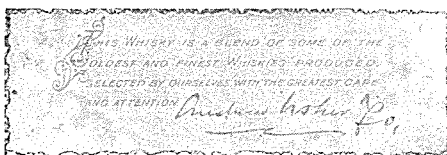 THIS WHISKY IS A BLEND OF SOME OF THE
OLDEST AND FINEST WHISKIES PRODUCED.
SELECTED BY OURSELVES WITH THE GREATEST CARE
AND ATTENTION Andrew Usher & Co,